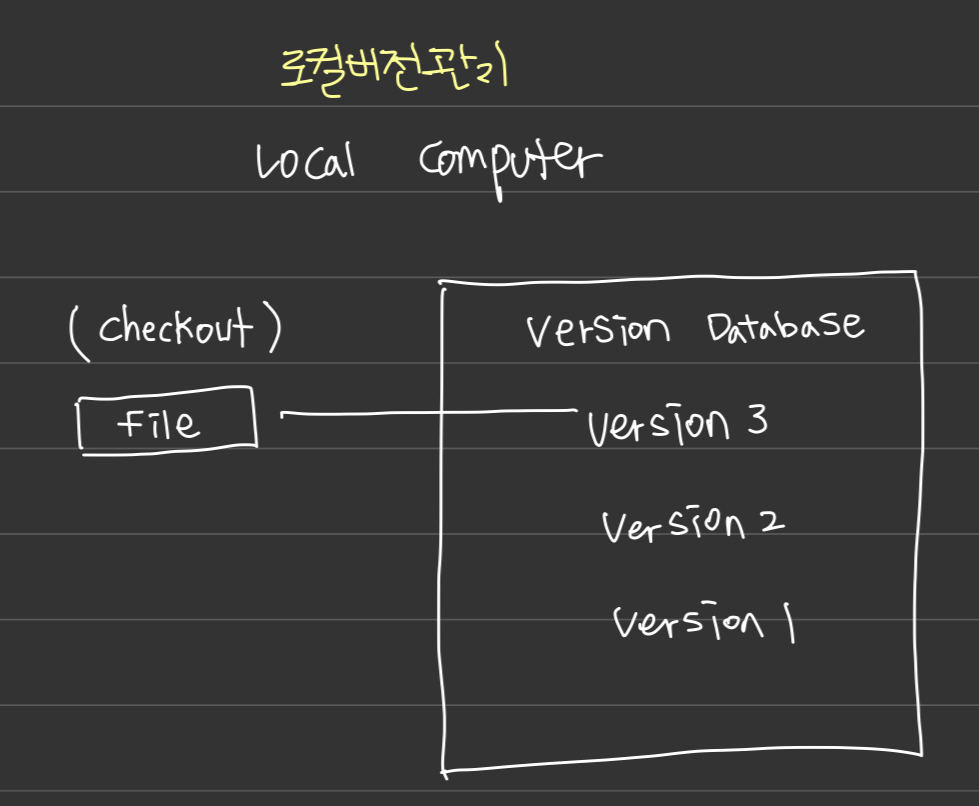 로컬버전관리
Local Computer
(checkout)
Version Database
File
Version 3
Version 2
Version 1